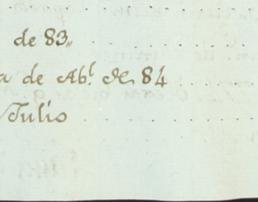 de 83.
a de Ab.l de 84
Julio